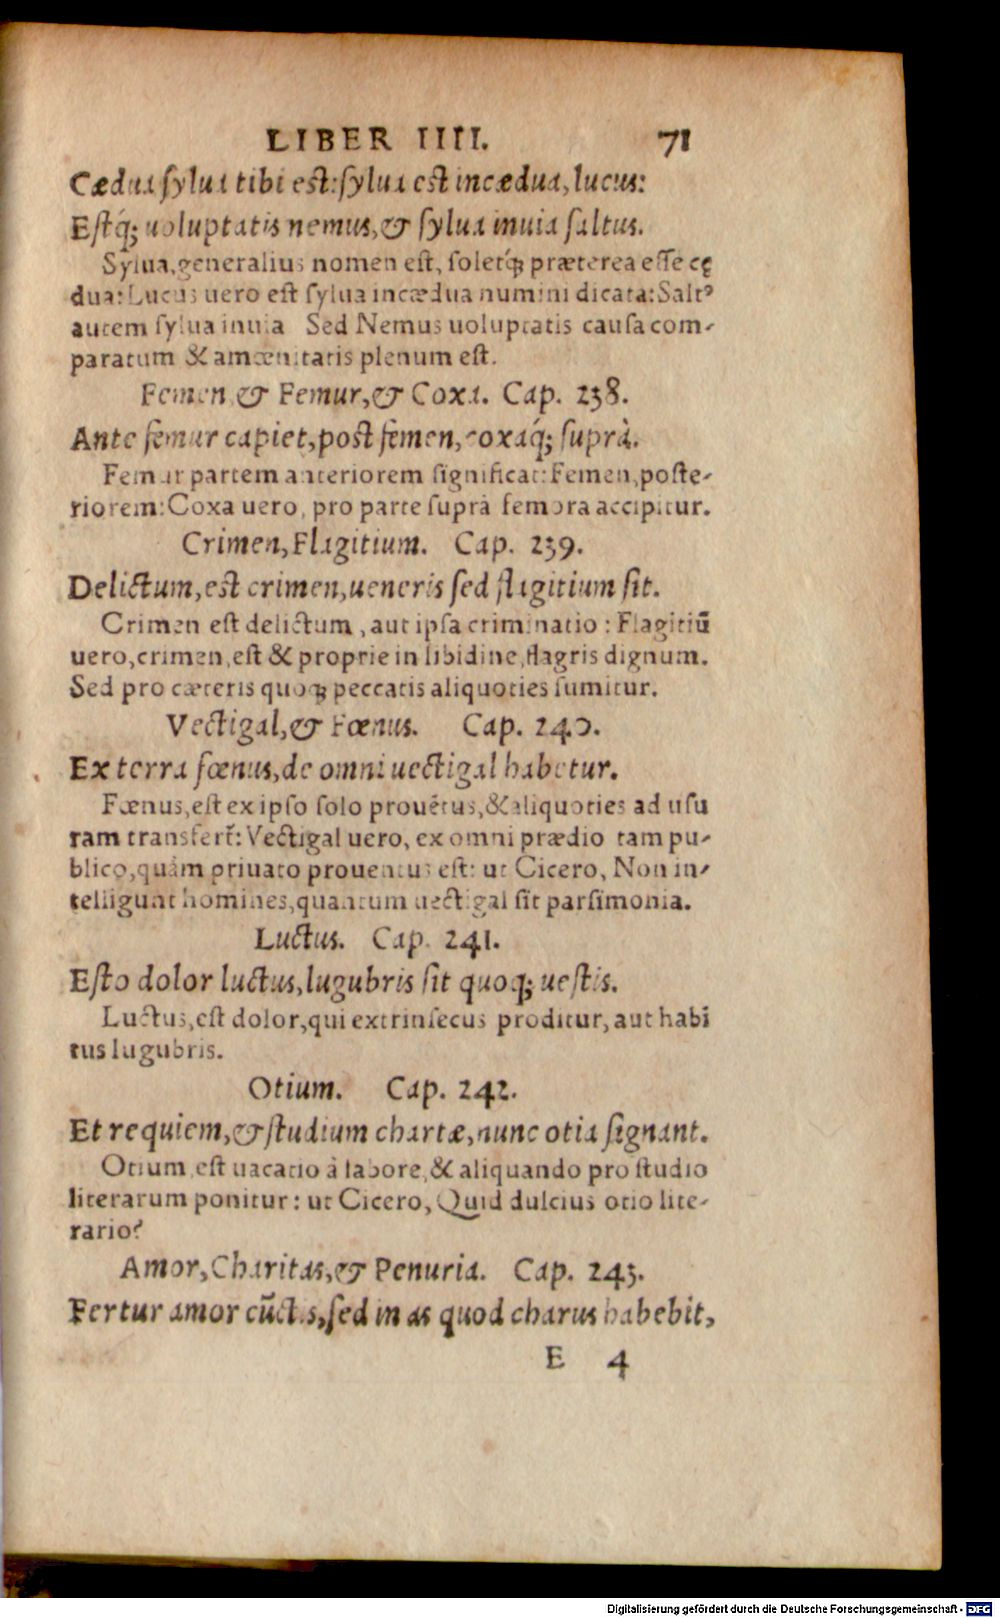 LIBER IIII. 71
Cædua ſylua tibi eſt: ſylua eſt incædua, lucus:
Eſtq́; uoluptatis nemus, & ſylua inuia ſaltus.
Sylua, generalius nomen eſt, ſoletq́ꝫ præterea eſſe cę
dua: Lucus uero eſt ſylua incædua numini dicata: Saltꝰ
autem ſylua inuia Sed Nemus uoluptatis cauſa com-
paratum & amœnitatis plenum eſt.
Femen & Femur, & Coxa. Cap. 238.
Ante femur capiet, poſt femen, coxaq́; ſuprà.
Femur partem anteriorem ſignificat: Femen, poſte-
riorem: Coxa uero, pro parte ſupra femora accipitur.
Crimen, Flagitium. Cap. 239.
Delictum, eſt crimen, ueneris ſed flagitium ſit.
Crimen eſt delictum, aut ipſa criminatio: Flagitiū
uero, crimen, eſt & proprie in libidine, flagris dignum.
Sed pro cæteris quoqꝫ peccatis aliquoties ſumitur.
Vectigal, & Fœnus. Cap. 240.
Ex terra fœnus, de omni uectigal habetur.
Fœnus, eſt ex ipſo ſolo prouētus, & aliquoties ad uſu
ram transfert̃: Vectigal uero, ex omni prædio tam pu-
blico, quàm priuato prouentus eſt: ut Cicero, Non in-
telligunt homines, quantum uectigal ſit parſimonia.
Luctus. Cap. 241.
Eſto dolor luctus, lugubris ſit quoq; ueſtis.
Luctus, eſt dolor, qui extrinſecus proditur, aut habi
tus lugubris.
Otium. Cap. 242.
Et requiem, & ſtudium chartæ, nunc otia ſignant.
Otium eſt uacatio à labore, & aliquando pro ſtudio
literarum ponitur: ut Cicero, Quid dulcius otio lite-
rario?
Amor, Charitas, & Penuria. Cap. 243.
Fertur amor cūctis, ſed in as quod charus habebit,
E 4
Digitalisierung gefördert durch die Deutsche Forschungsgemeinschaft - DFG